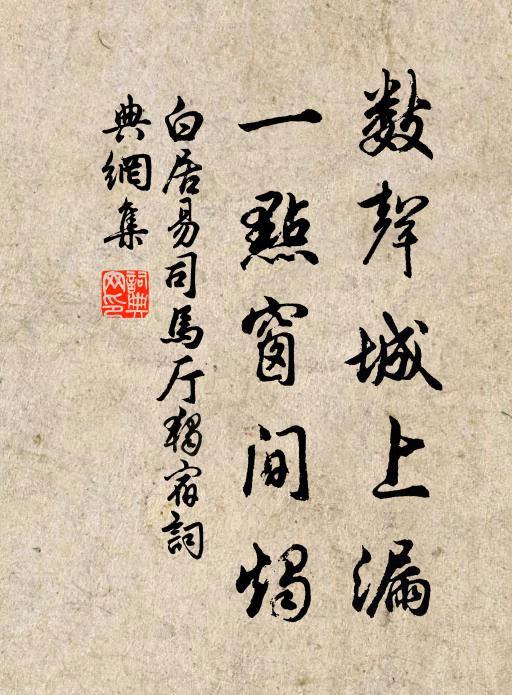 數聲城上漏
一點窗間燭
白居易司馬厅獨宿詞
典網集
詞典网印